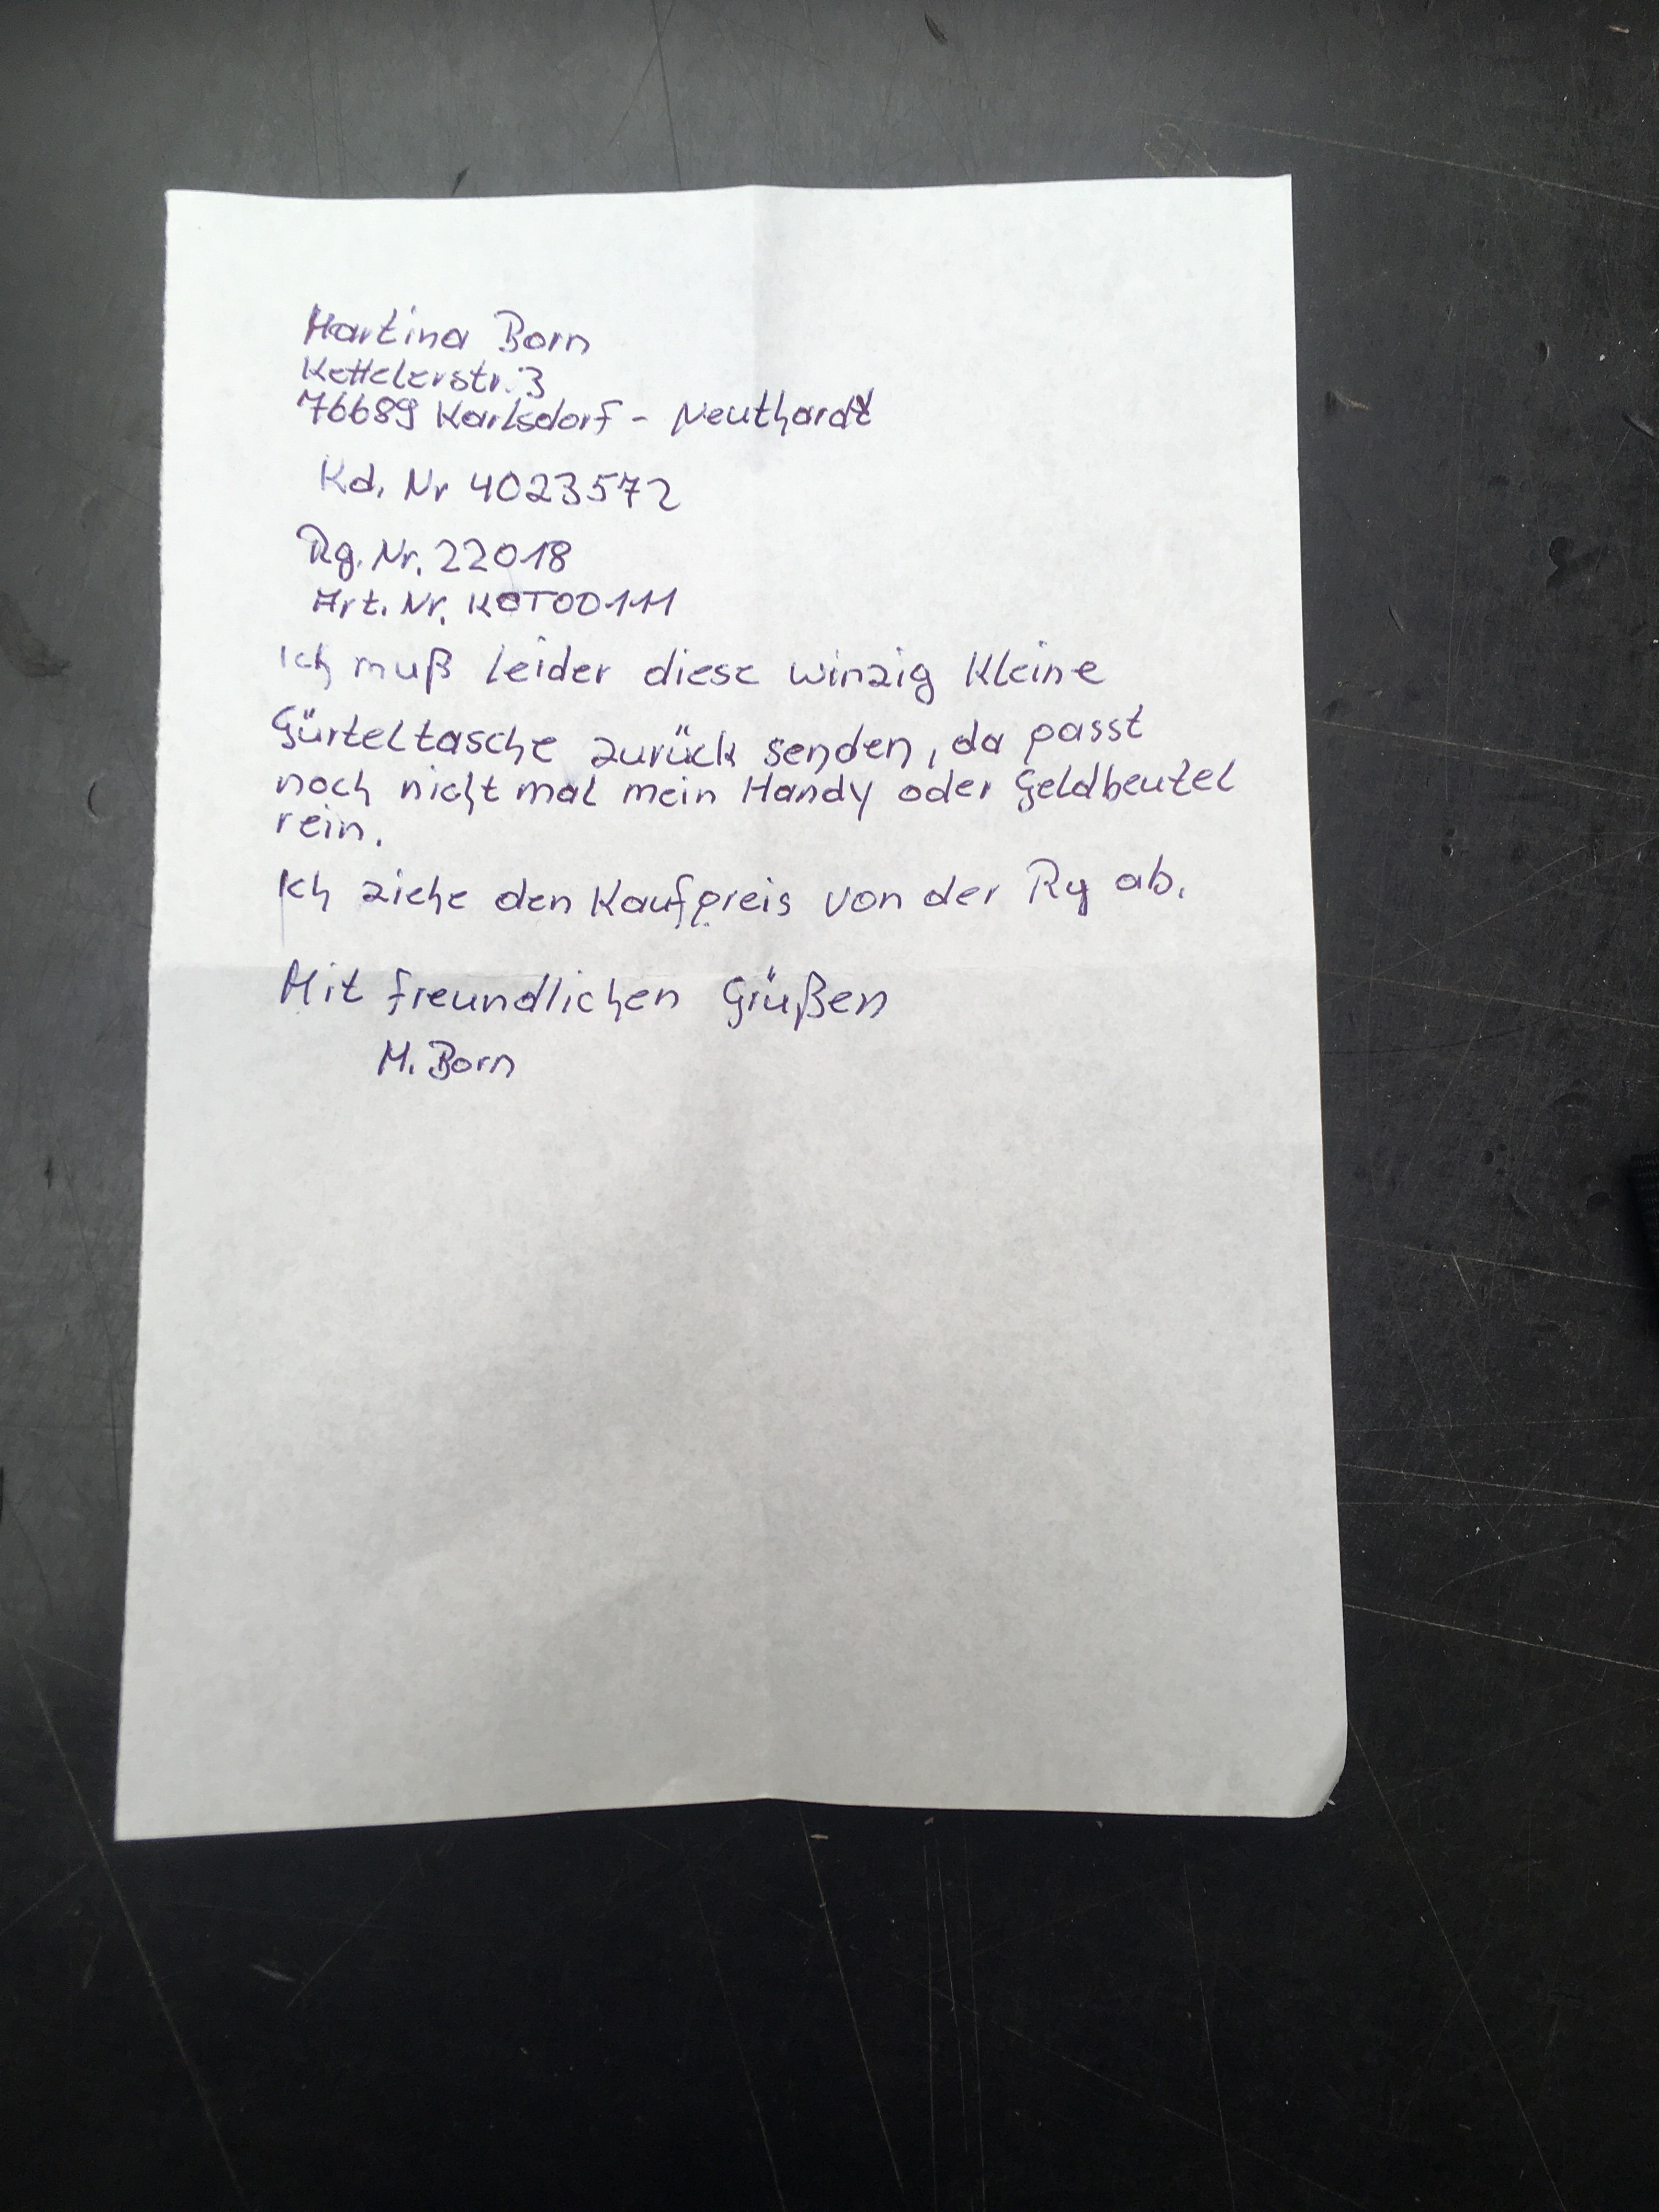 Martina Born
Kettelerstr. 3
76689 Karlsdorf - Neuthardt
Kd. Nr 4023572
Rg. Nr. 22018
Art. Nr. KOT00111
Ich muß leider diese winzig kleine
Gürteltasche zurück senden, da passt
noch nicht mal mein Handy oder Geldbeutel
rein.
Ich ziehe den Kaufpreis von der Rg ab.
Mit freundlichen Grüßen
M. Born